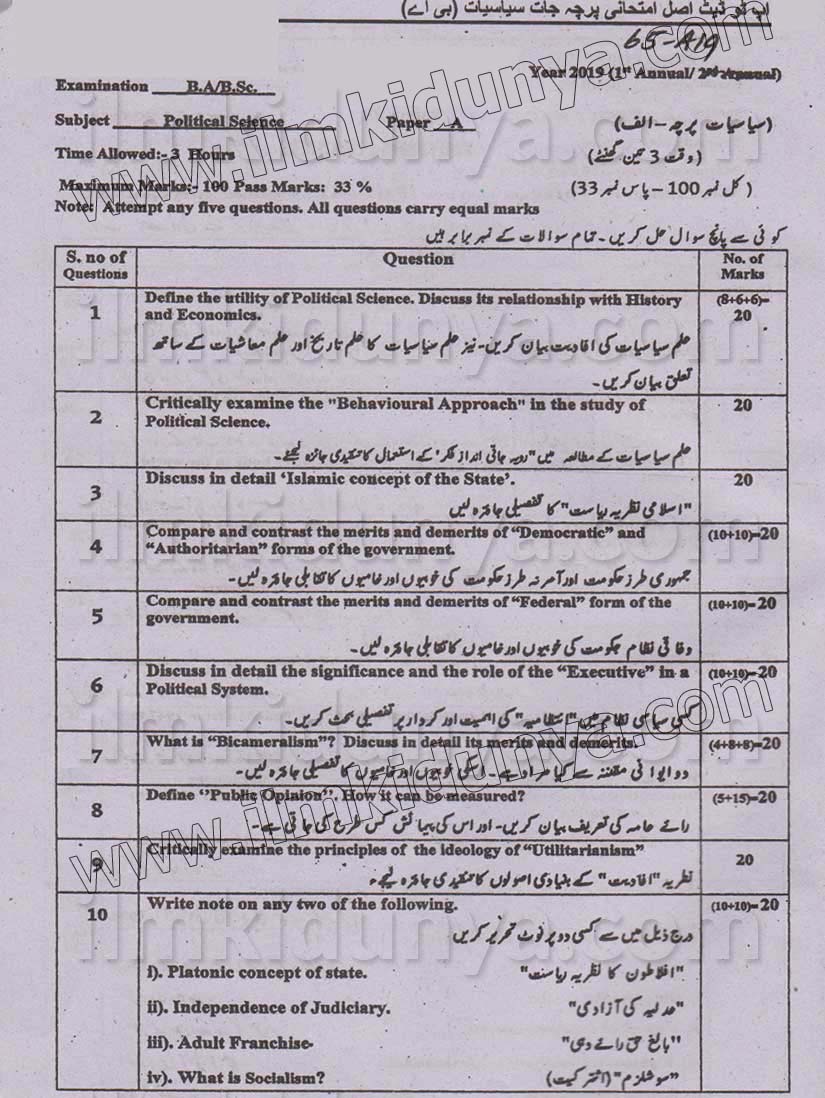 اپ ٹو ڈیٹ اصل امتحانی پرچہ جات سیاسیات (بی اے)
65-A19
Year 2019 (1st Annual/ 2nd Annual)
Examination B.A/B.Sc.
Subject Political Science Paper A (سیاسیات پرچہ - الف)
Time Allowed:- 3 Hours (وقت 3 تین گھنٹے)
Maximum Marks:- 100 Pass Marks: 33 % (کل نمبر 100 - پاس نمبر 33)
Note: Attempt any five questions. All questions carry equal marks
کوئی سے پانچ سوال حل کریں۔ تمام سوالات کے نمبر برابر ہیں
S. no of Questions Question No. of Marks
1 Define the utility of Political Science. Discuss its relationship with History (8+6+6)=
and Economics. 20
علم سیاسیات کی افادیت بیان کریں۔ نیز علم سیاسیات کا علم تاریخ اور علم معاشیات کے ساتھ
تعلق بیان کریں۔
2 Critically examine the "Behavioural Approach" in the study of 20
Political Science.
علم سیاسیات کے مطالعہ میں "رویہ جاتی انداز فکر" کے استعمال کا تنقیدی جائزہ لیجئے۔
3 Discuss in detail ‘Islamic concept of the State’. 20
"اسلامی نظریہ ریاست" کا تفصیلی جائزہ لیں
4 Compare and contrast the merits and demerits of “Democratic” and (10+10)=20
“Authoritarian” forms of the government.
جمہوری طرز حکومت اور آمرنہ طرز حکومت کی خوبیوں اور خامیوں کا تقابلی جائزہ لیں۔
5 Compare and contrast the merits and demerits of “Federal” form of the (10+10)=20
government.
وفاقی نظام حکومت کی خوبیوں اور خامیوں کا تقابلی جائزہ لیں۔
6 Discuss in detail the significance and the role of the “Executive” in a (10+10)=20
Political System.
کسی سیاسی نظام میں "انتظامیہ" کی اہمیت اور کردار پر تفصیلی بحث کریں۔
7 What is “Bicameralism”? Discuss in detail its merits and demerits. (4+8+8)=20
دو ایوانی مقننہ سے کیا مراد ہے۔ اسکی خوبیوں اور خامیوں کا تفصیلی جائزہ لیں۔
8 Define ‘‘Public Opinion’’. How it can be measured? (5+15)=20
رائے عامہ کی تعریف بیان کریں۔ اور اس کی پیمائش کس طرح کی جاتی ہے۔
9 Critically examine the principles of the ideology of “Utilitarianism” 20
نظریہ "افادیت" کے بنیادی اصولوں کا تنقیدی جائزہ لیجیے
10 Write note on any two of the following. (10+10)=20
درج ذیل میں سے کسی دو پر نوٹ تحریر کریں
i). Platonic concept of state. "افلاطون کا نظریہ ریاست"
ii). Independence of Judiciary. "عدلیہ کی آزادی"
iii). Adult Franchise "بالغ حق رائے دہی"
iv). What is Socialism? "سوشلزم" (اشتراکیت)
www.ilmkidunya.com
www.ilmkidunya.com
ilmkidunya.com
ilmkidunya.com
ilmkidunya.com
ilmkidunya.com
ilmkidunya.com